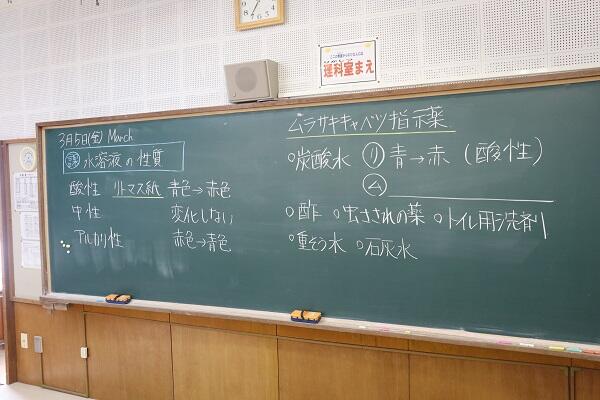 理科室まえ
3月5日(金) March
水溶液の性質
酸性 リトマス紙 青色→赤色
中性 変化しない
アルカリ性 赤色→青色
ムラサキキャベツ指示薬
○炭酸水 リ 青→赤(酸性)
ム
○酢 ○虫さされの薬 ○トイレ用洗剤
○重そう水 ○石灰水